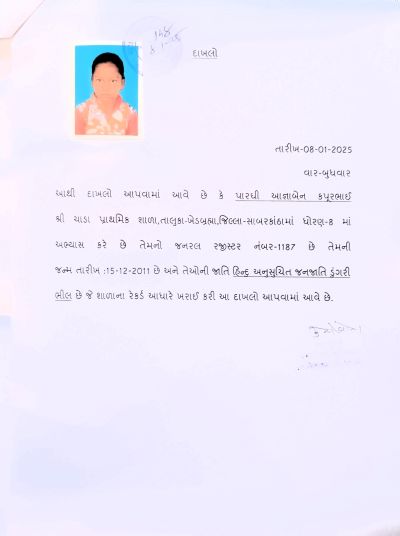 દાખલો
તારીખ-08-01-2025
વાર-બુધવાર
આથી દાખલો આપવામાં આવે છે કે પારઘી આજ્ઞાબેન કપૂરભાઈ
શ્રી ચાડા પ્રાથમિક શાળા,તાલુકા-ખેડબ્રહ્મા,જિલ્લા-સાબરકાંઠામાં ધોરણ-8 માં
અભ્યાસ કરે છે તેમનો જનરલ રજીસ્ટર નંબર-1187 છે તેમની
જન્મ તારીખ :15-12-2011 છે અને તેઓની જાતિ હિન્દુ અનુસુચિત જનજાતિ ડુંગરી
ભીલ છે જે શાળાના રેકર્ડ આધારે ખરાઈ કરી આ દાખલો આપવામાં આવે છે.